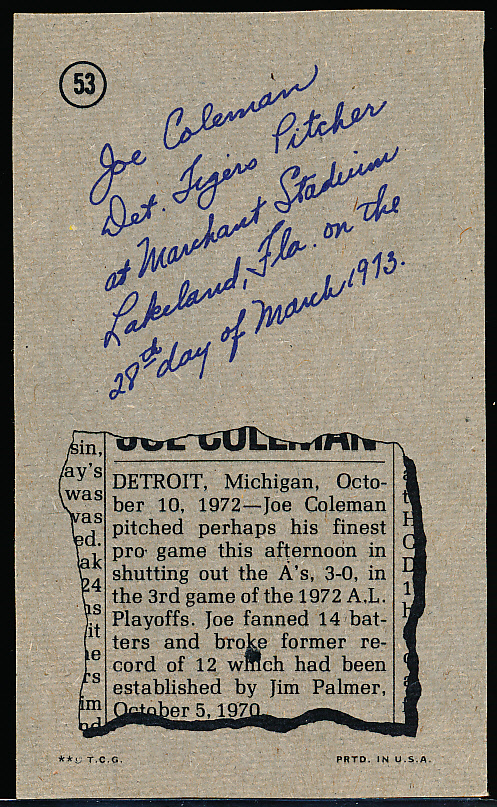 53
Joe Coleman
Det. Tigers Pitcher
at Marchant Stadium
Lakeland, Fla. on the
28th day of March 1973.
JOE COLEMAN
sin,
ay's
was
vas
ed.
ak
24
ns
it
ne
rs
im
nd
DETROIT, Michigan, Octo-
ber 10, 1972—Joe Coleman
pitched perhaps his finest
pro game this afternoon in
shutting out the A's, 3-0, in
the 3rd game of the 1972 A.L.
Playoffs. Joe fanned 14 bat-
ters and broke former re-
cord of 12 which had been
established by Jim Palmer,
October 5, 1970.
**© T.C.G.
PRTD. IN U.S.A.